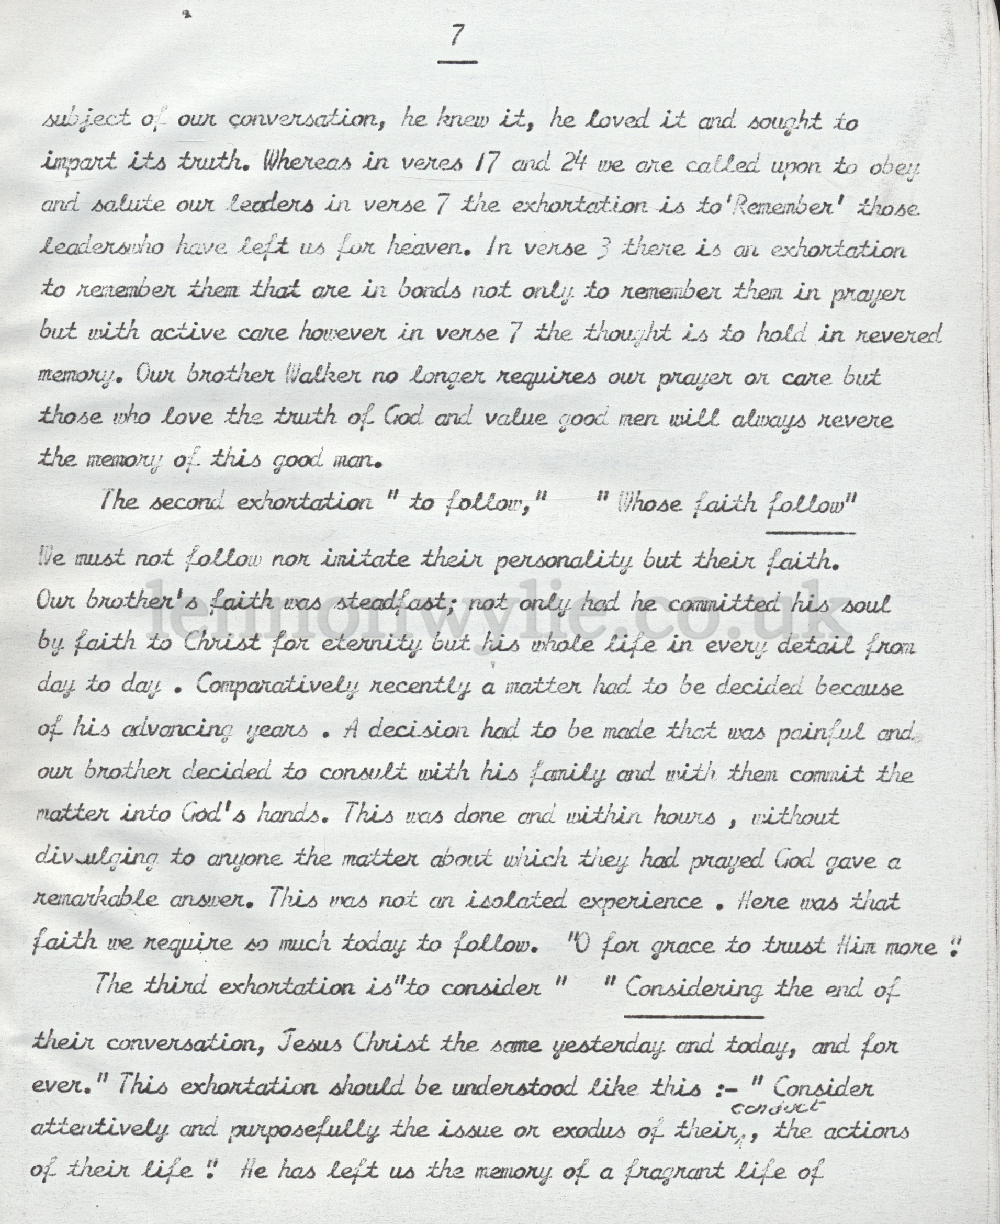 7
subject of our conversation, he knew it, he loved it and sought to
impart its truth. Whereas in veres 17 and 24 we are called upon to obey
and salute our leaders in verse 7 the exhortation is to'Remember' those
leaderswho have left us for heaven. In verse 3 there is an exhortation
to remember them that are in bonds not only to remember them in prayer
but with active care however in verse 7 the thought is to hold in revered
memory. Our brother Walker no longer requires our prayer or care but
those who love the truth of God and value good men will always revere
the memory of this good man.
The second exhortation " to follow," " Whose faith follow"
We must not follow nor imitate their personality but their faith.
Our brother's faith was steadfast; not only had he committed his soul
by faith to Christ for eternity but his whole life in every detail from
day to day . Comparatively recently a matter had to be decided because
of his advancing years . A decision had to be made that was painful and
our brother decided to consult with his family and with them commit the
matter into God's hands. This was done and within hours , without
divulging to anyone the matter about which they had prayed God gave a
remarkable answer. This was not an isolated experience . Here was that
faith we require so much today to follow. "O for grace to trust Him more ".
The third exhortation is"to consider " " Considering the end of
their conversation, Jesus Christ the same yesterday and today, and for
ever." This exhortation should be understood like this :- " Consider
conduct
attentively and purposefully the issue or exodus of their , the actions
of their life ". He has left us the memory of a fragrant life of
lennonwylie.co.uk